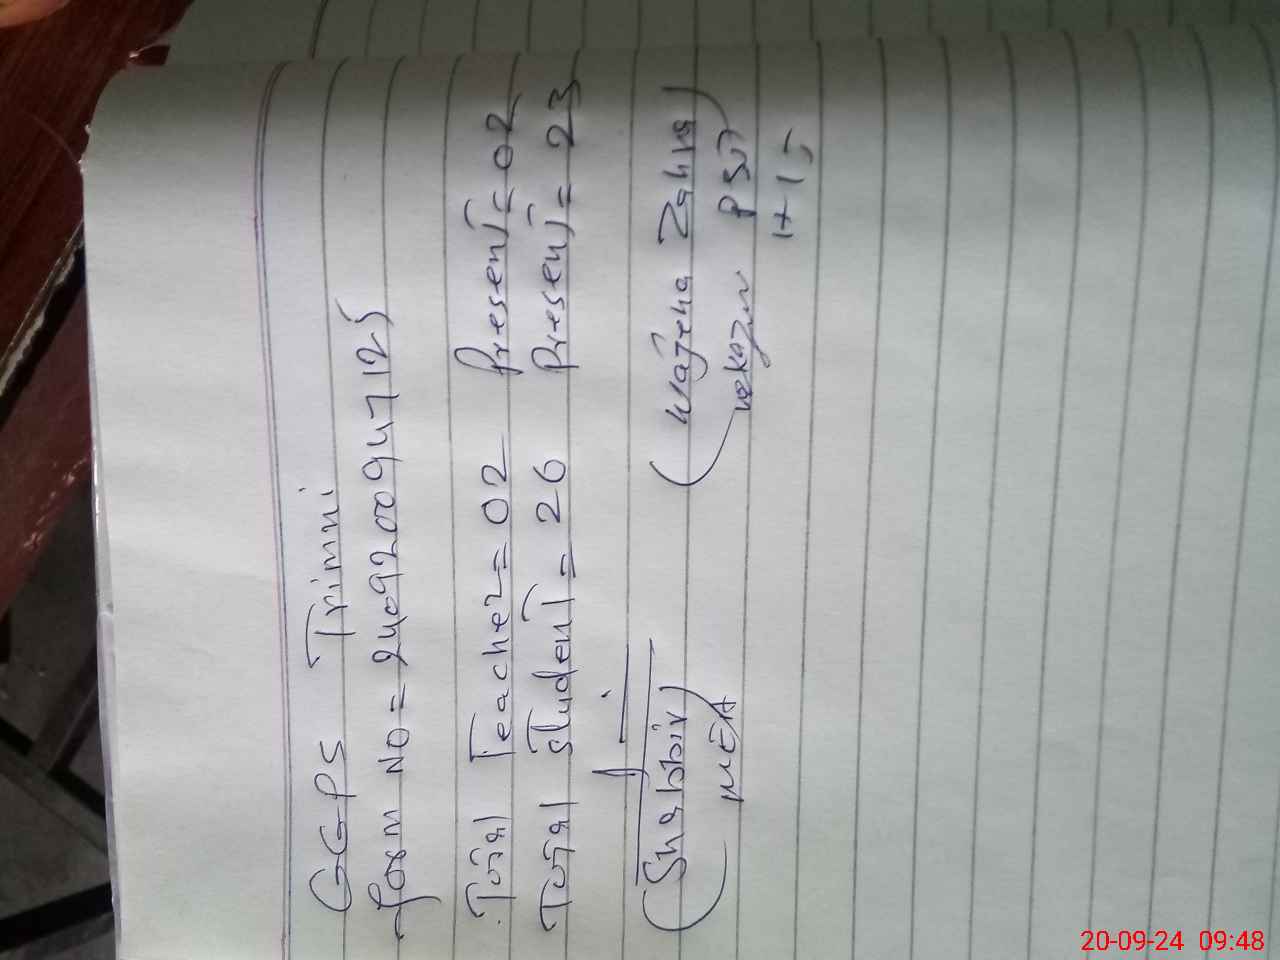 GGPS Trimni
form No = 2409200947125
Total Teacher = 02 Present = 02
Total Student = 26 Present = 23
(Shabbir) (Wajeha Zahra)
MEA PST
H-I5
20-09-24 09:48